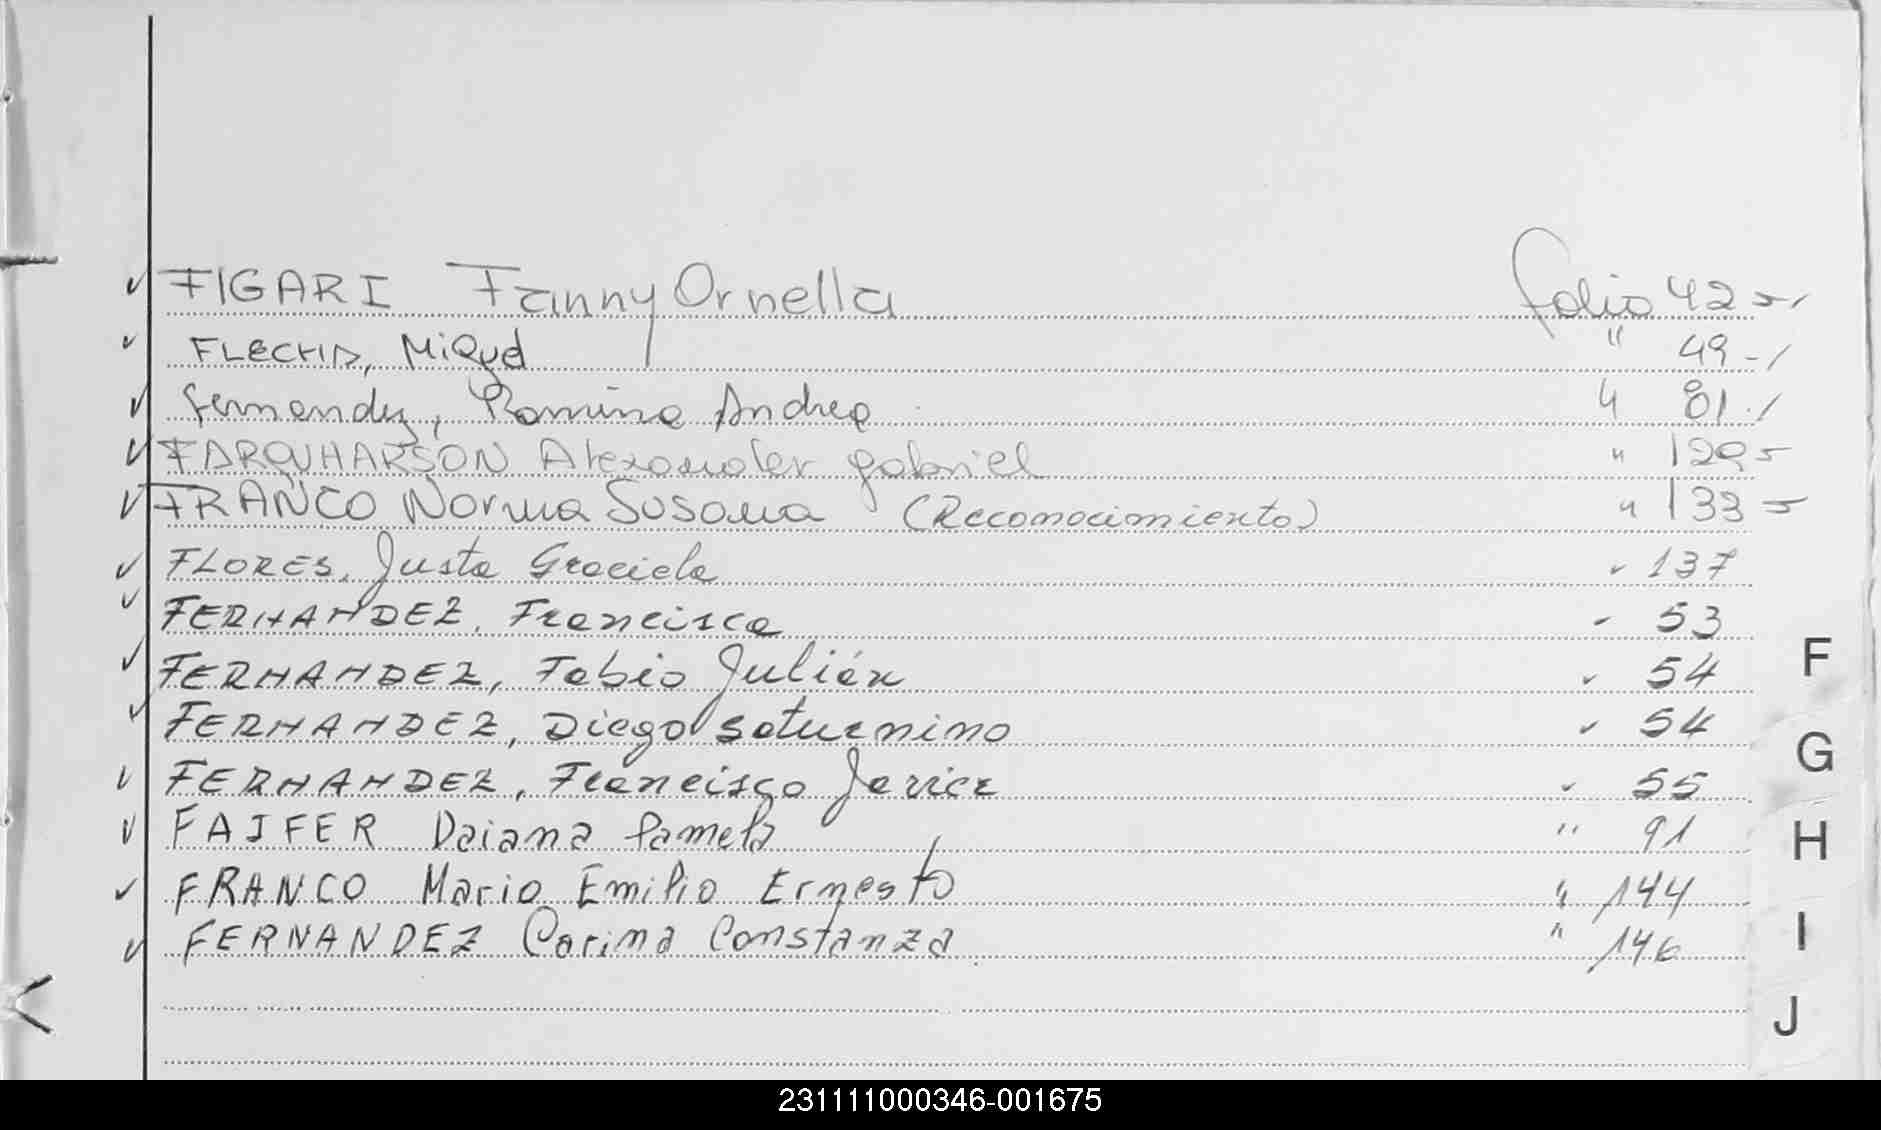 ✓ FIGARI Fanny Ornella folio 42
✓ FLECHA, Miguel " 49
✓ Fernandez, Romina Andrea " 81
✓ FARQUHARSON Alexander gabriel " 129
✓ FRANCO Norma Susana (Reconocimiento) " 133
✓ FLORES, Justa Graciela " 137
✓ FERNANDEZ, Francisca " 53
✓ FERNANDEZ, Fabio Julián " 54
✓ FERNANDEZ, Diego saturnino " 54
✓ FERNANDEZ, Francisco Javier " 55
✓ FAIFER Daiana Pamela " 91
✓ FRANCO Mario Emilio Ernesto " 144
✓ FERNANDEZ Carina Constanza " 146
F
G
H
I
J
231111000346-001675